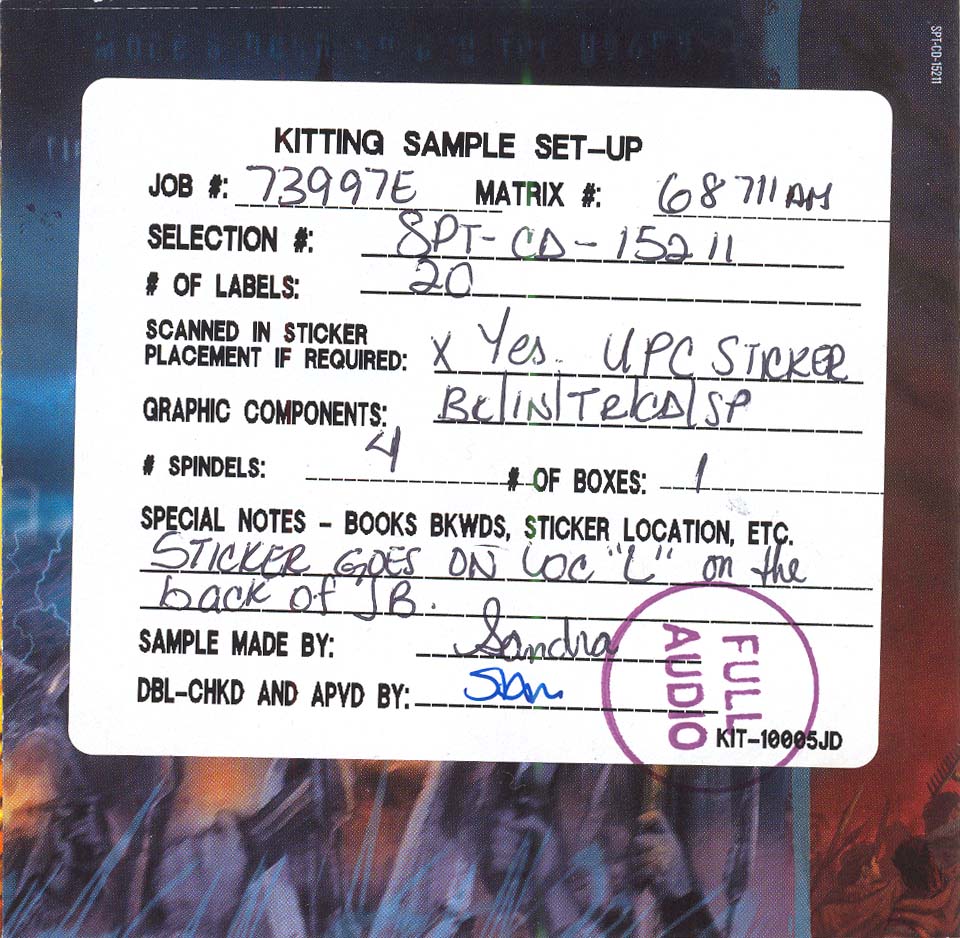 SPT-CD-15211
KITTING SAMPLE SET-UP
JOB #: 73997E MATRIX #: 68711AM
SELECTION #: SPT-CD-15211
# OF LABELS: 20
SCANNED IN STICKER
PLACEMENT IF REQUIRED: X Yes. UPC STICKER
GRAPHIC COMPONENTS: BK/IN/TR/CD/SP
# SPINDELS: 4 # OF BOXES: 1
SPECIAL NOTES - BOOKS BKWDS, STICKER LOCATION, ETC.
STICKER GOES ON LOC "L" on the
back of JB.
SAMPLE MADE BY: Sandra
DBL-CHKD AND APVD BY:
FULL
AUDIO
KIT-10005JD